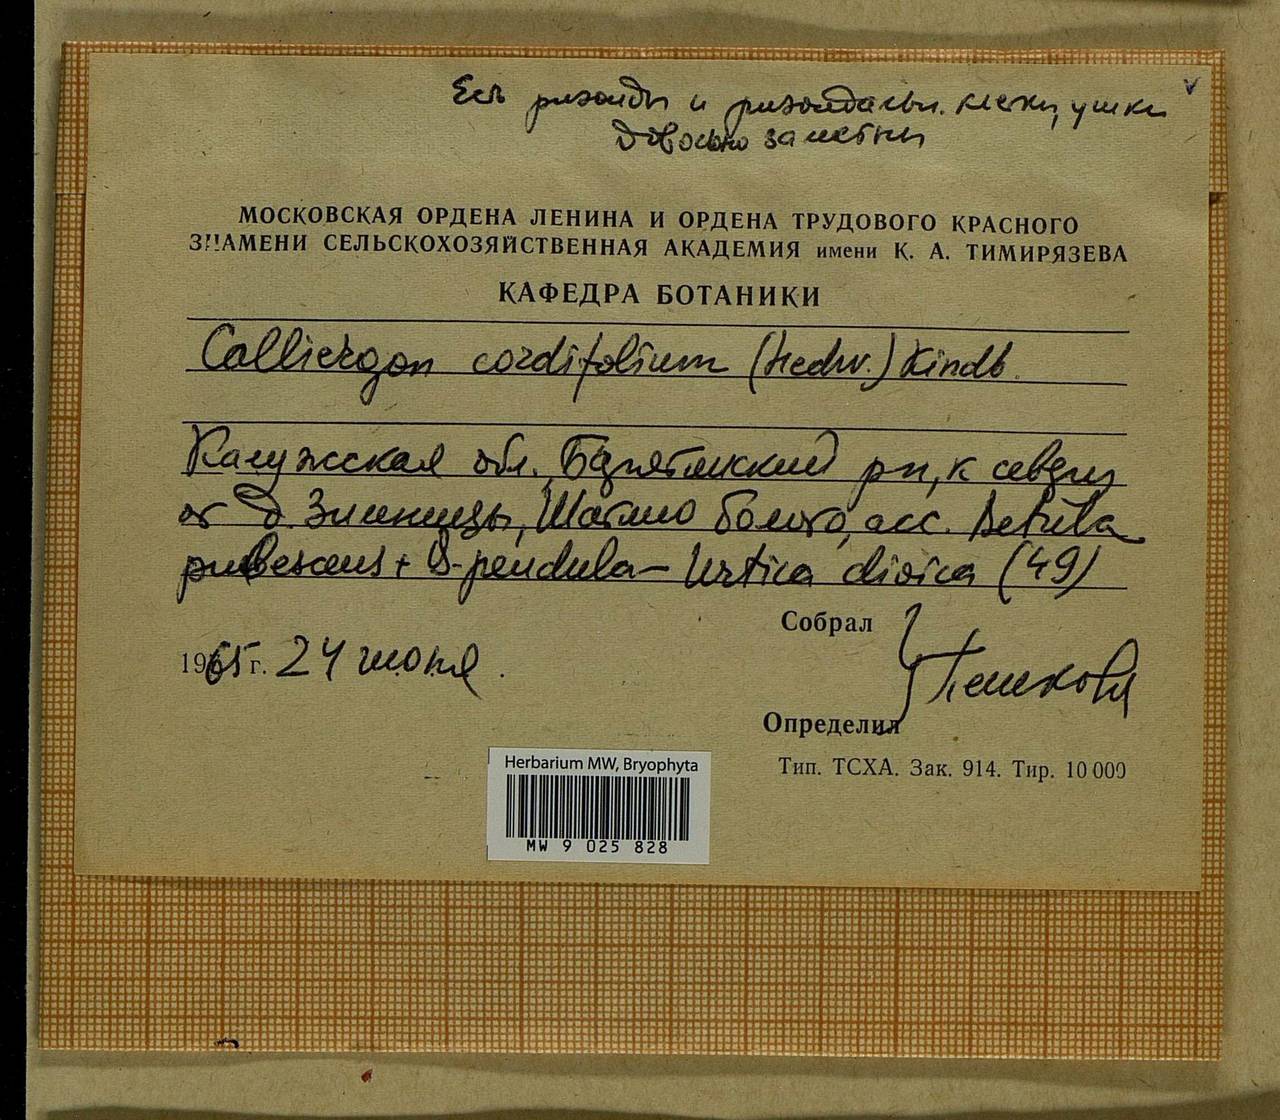 Есть ризоиды и ризоидальн. клетки, ушки
довольно заметны
v
МОСКОВСКАЯ ОРДЕНА ЛЕНИНА И ОРДЕНА ТРУДОВОГО КРАСНОГО
ЗНАМЕНИ СЕЛЬСКОХОЗЯЙСТВЕННАЯ АКАДЕМИЯ имени К. А. ТИМИРЯЗЕВА
КАФЕДРА БОТАНИКИ
Calliergon cordifolium (Hedw.) Kindb.
Калужская обл., Барятинский рн, к северу
от д. Зинницы, Шатино болото, асс. Betula
pubescens + B. pendula – Urtica dioica (49)
Собрал
1965 г. 24 июня.
Пешкова
Определил
Тип. ТСХА. Зак. 914. Тир. 10 000
Herbarium MW, Bryophyta
MW 9 025 828